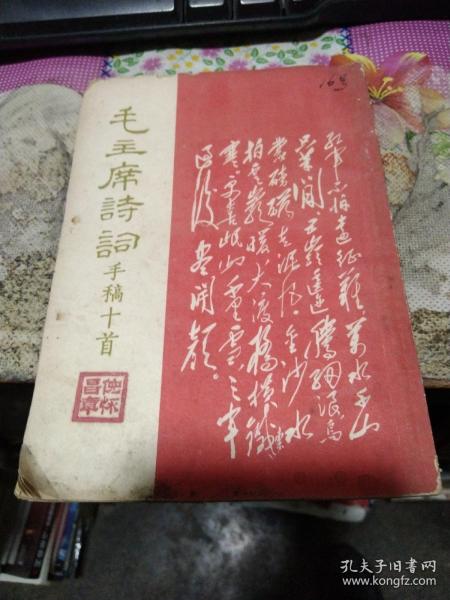 毛主席詩詞
手稿十首
紅軍不怕遠征難萬水千山
只等閒五嶺逶迤騰細浪烏
蒙磅礴走泥丸金沙水
拍雲崖暖大渡橋橫鐵索
寒更喜岷山千里雪三軍
過後盡開顏。
孔夫子旧书网
www.kongfz.com